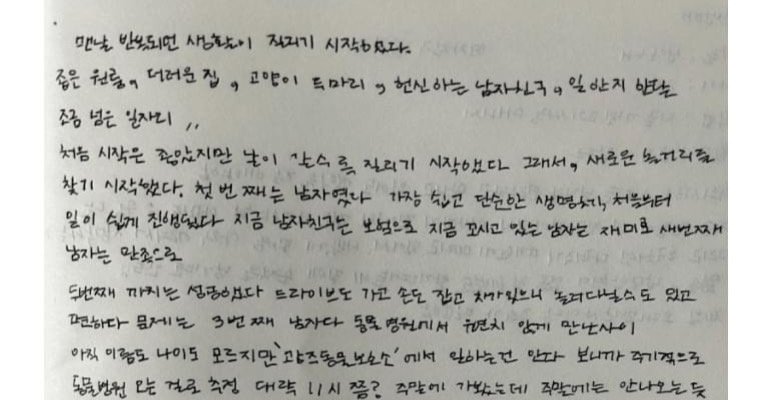 맨날 반복되던 생활이 질리기 시작했다.
좁은 원룸, 더러운 집, 고양이 두마리, 헌신하는 남자친구, 일 한지 한달
조금 넘은 일자리,,
처음 시작은 좋았지만 날이 갈수록 질리기 시작했다 그래서, 새로운 놀거리를
찾기 시작했다 첫번째는 남자였다 가장 쉽고 단순한 생명체, 처음부터
일이 쉽게 진행됐다 지금 남자친구는 보험으로 지금 꼬시고 있는 남자는 재미로 세번째
남자는 만족으로
두번째 까지는 성공했다 드라이브도 가고 손도 잡고 차가있으니 놀러다닐수도 있고
편하다 문제는 3번째 남자다 동물병원에서 우연치 않게 만난사이
아직 이름도 나이도 모르지만 '광주동물보호소' 에서 일하는건 안다 보니까 주기적으로
동물병원 오는 걸로 추정 대략 11시 쯤? 주말에 가봤는데 주말에는 안나오는듯